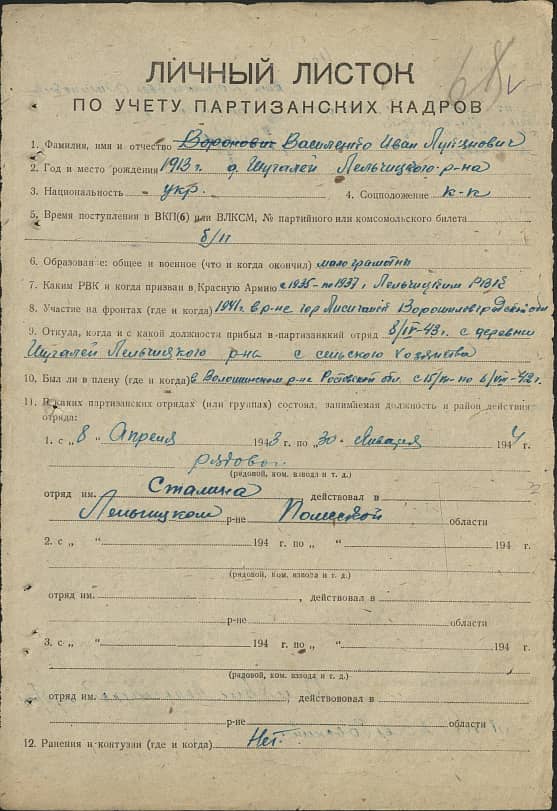 68 v
ЛИЧНЫЙ ЛИСТОК
ПО УЧЕТУ ПАРТИЗАНСКИХ КАДРОВ
1. Фамилия, имя и отчество Воронович Василенко Иван
2. Год и место рождения 1913 г. д. Шугалей Лельчицкого р-на
3. Национальность укр. 4. Соцположение к-к
5. Время поступления в ВКП(б) или ВЛКСМ, № партийного или комсомольского билета
б/п
6. Образование: общее и военное (что и когда окончил) малограмотн
7. Каким РВК и когда призван в Красную Армию с 1935 по 1937 г. Лельчицким РВК
8. Участие на фронтах (где и когда) 1941 г. в р-не гор Лисичанск Ворошиловградской обл
9. Откуда, когда и с какой должности прибыл в партизанский отряд 8/IV-43 г. с деревни
Шугалей Лельчицкого р-на с сельского хозяйства
10. Был ли в плену (где и когда) в Волошинском р-не Ростовской обл. с 15/ по 6/ -42 г.
11. В каких партизанских отрядах (или группах) состоял, занимаемая должность и район действия
отряда:
1. с „ 8 “ Апреля 1943 г. по „ 30 “ Января 1944 г.
рядовой
(рядовой, ком. взвода и т. д.)
отряд им. Сталина, действовал в
Лельчицком р-не Полесской области
2. с „ “ 194 г. по „ “ 194 г.
(рядовой, ком. взвода и т. д.)
отряд им. , действовал в
р-не области
3. с „ “ 194 г. по „ “ 194 г.
(рядовой, ком. взвода и т. д.)
отряд им. , действовал в
р-не области
12. Ранения и контузии (где и когда) Нет.